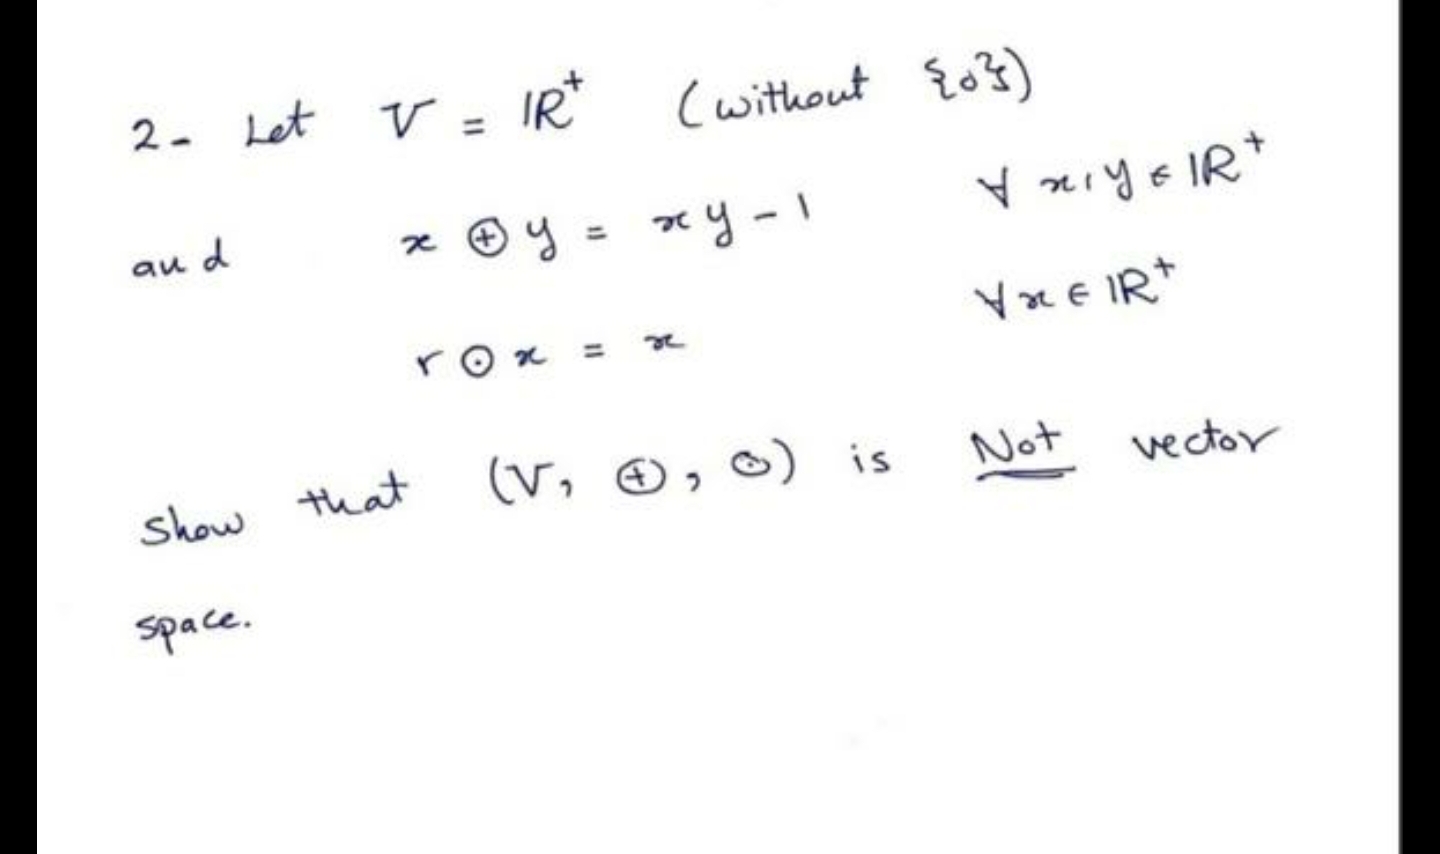 2- Let V = ℝ⁺ (without {0})
and x ⊕ y = xy - 1 ∀ x, y ∈ ℝ⁺
r ⊙ x = x ∀ x ∈ ℝ⁺
Show that (V, ⊕, ⊙) is Not vector
space.